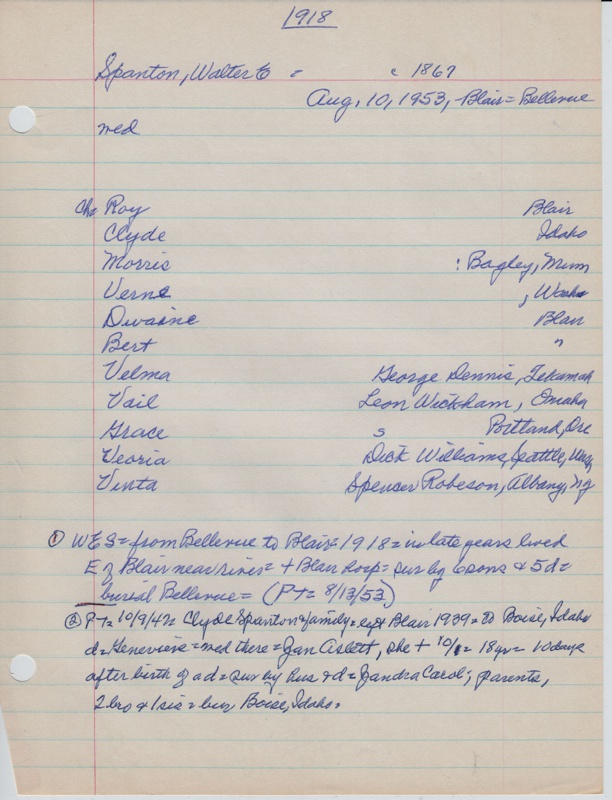 1918
Spanton, Walter E = c 1867
Aug. 10, 1953, Blair = Bellevue
med
Chs Roy Blair
Clyde Idaho
Morris : Bagley, Minn
Verne , Wash
Dwaine Blair
Bert "
Velma George Dennis, Tekamah
Vail Leon Wickham, Omaha
Grace s Portland, Ore
Veoria Dick Williams, Seattle, Wash
Venta Spencer Robeson, Albany, NY
① W E S = from Bellevue to Blair = 1918 = in late years lived
E of Blair near river = + Blair Hosp = sur by 6 sons & 5 d =
burial Bellevue = (PT = 8/13/53)
② PT = 10/9/47 = Clyde Spanton & family = left Blair 1939 = to Boise, Idaho
d = Genevieve = med there = Jan Aslett, she + 10/1 = 18 yr = 10 days
after birth of a d = sur by hus & d = Jandra Carol; parents,
2 bro & 1 sis = bur Boise, Idaho =